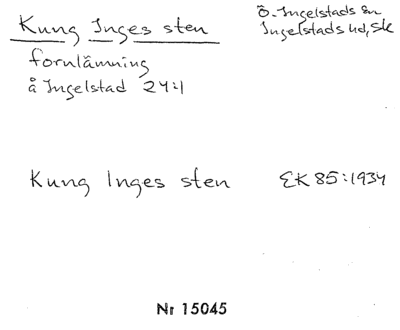 Kung Inges sten
Ö. Ingelstads sn
Ingelstads hd, Sk
fornlämning
å Ingelstad 24:1
Kung Inges sten
EK 85:1934
Nr 15045